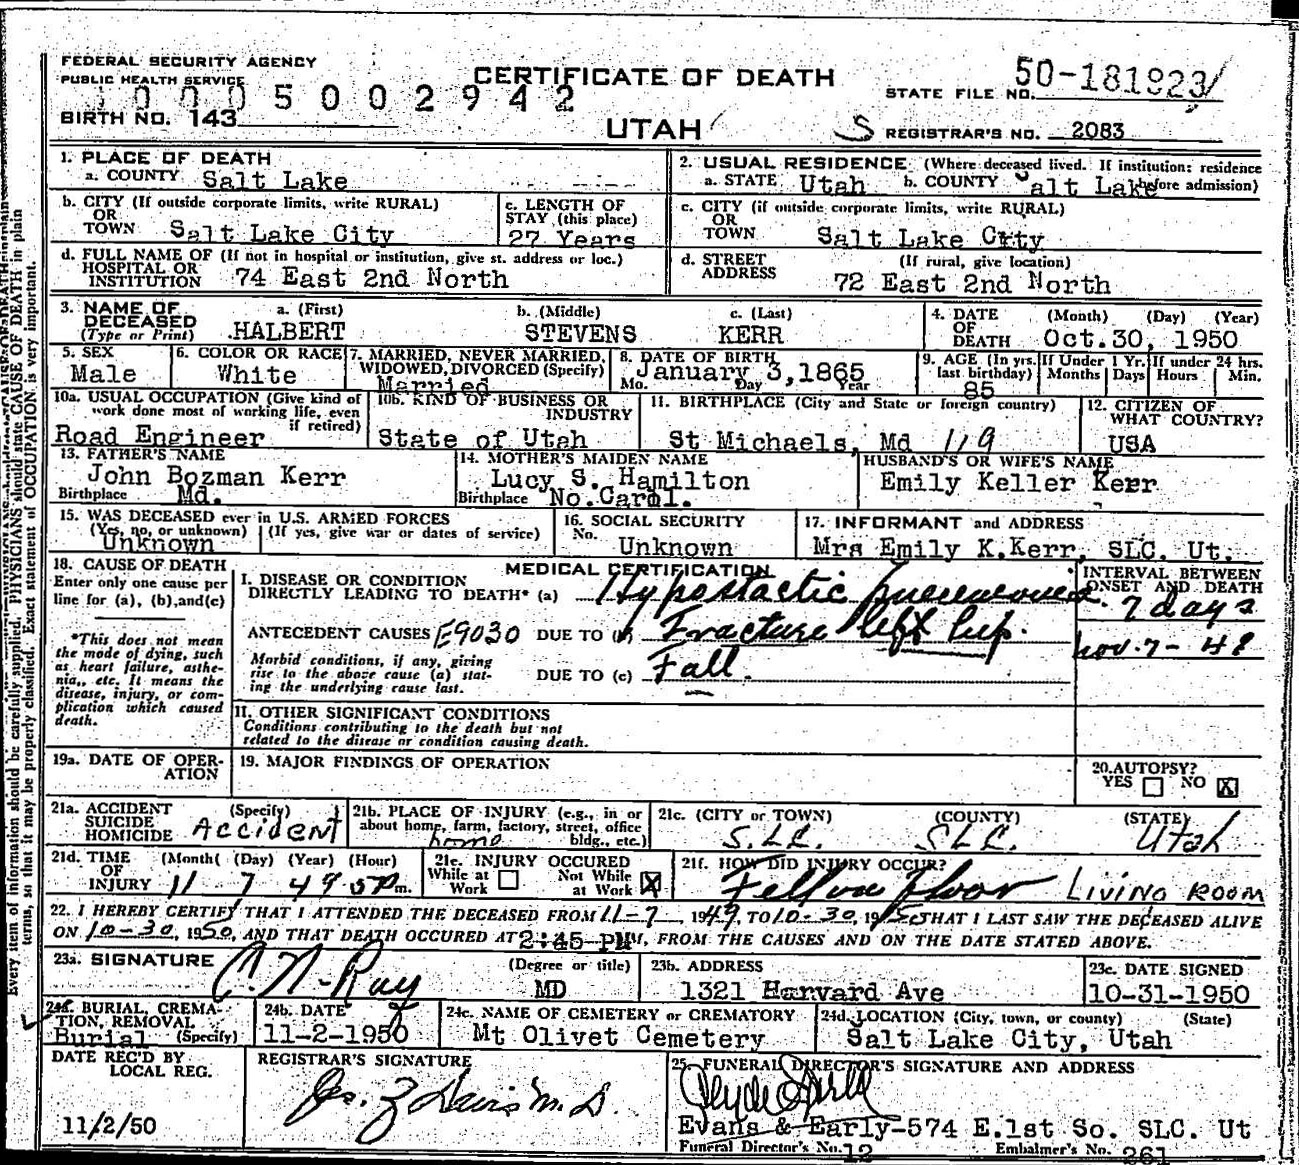 FEDERAL SECURITY AGENCY
PUBLIC HEALTH SERVICE
CERTIFICATE OF DEATH
STATE FILE NO. 50-181923
0005002942
BIRTH NO. 143
UTAH
S REGISTRAR'S NO. 2083
1. PLACE OF DEATH
a. COUNTY Salt Lake
2. USUAL RESIDENCE (Where deceased lived. If institution: residence before admission)
a. STATE Utah b. COUNTY Salt Lake
b. CITY (If outside corporate limits, write RURAL)
OR
TOWN Salt Lake City
c. LENGTH OF
STAY (this place)
27 Years
c. CITY (if outside corporate limits, write RURAL)
OR
TOWN Salt Lake City
d. FULL NAME OF (If not in hospital or institution, give st. address or loc.)
HOSPITAL OR
INSTITUTION 74 East 2nd North
d. STREET (If rural, give location)
ADDRESS 72 East 2nd North
3. NAME OF DECEASED (Type or Print)
a. (First) HALBERT
b. (Middle) STEVENS
c. (Last) KERR
4. DATE OF DEATH (Month) (Day) (Year)
Oct.30, 1950
5. SEX
Male
6. COLOR OR RACE
White
7. MARRIED, NEVER MARRIED, WIDOWED, DIVORCED (Specify)
Married
8. DATE OF BIRTH
January 3,1865
Mo. Day Year
9. AGE (In yrs. last birthday)
85
If Under 1 Yr. Months Days
If under 24 hrs. Hours Min.
10a. USUAL OCCUPATION (Give kind of work done most of working life, even if retired)
Road Engineer
10b. KIND OF BUSINESS OR INDUSTRY
State of Utah
11. BIRTHPLACE (City and State or foreign country)
St Michaels, Md 119
12. CITIZEN OF WHAT COUNTRY?
USA
13. FATHER'S NAME
John Bozman Kerr
Birthplace Md.
14. MOTHER'S MAIDEN NAME
Lucy S. Hamilton
Birthplace No.Carol.
HUSBAND'S OR WIFE'S NAME
Emily Keller Kerr
15. WAS DECEASED ever in U.S. ARMED FORCES
(Yes, no, or unknown) (If yes, give war or dates of service)
Unknown
16. SOCIAL SECURITY
No. Unknown
17. INFORMANT and ADDRESS
Mrs Emily K.Kerr, SLC. Ut.
18. CAUSE OF DEATH
Enter only one cause per line for (a), (b), and (c)
*This does not mean the mode of dying, such as heart failure, asthenia, etc. It means the disease, injury, or complication which caused death.
MEDICAL CERTIFICATION
INTERVAL BETWEEN ONSET AND DEATH
I. DISEASE OR CONDITION
DIRECTLY LEADING TO DEATH* (a) Hypostactic pneumonia. 7 days
ANTECEDENT CAUSES E9030 DUE TO (b) Fracture left hip. Nov. 7 - 49
Morbid conditions, if any, giving rise to the above cause (a) stating the underlying cause last.
DUE TO (c) Fall.
II. OTHER SIGNIFICANT CONDITIONS
Conditions contributing to the death but not related to the disease or condition causing death.
19a. DATE OF OPERATION
19. MAJOR FINDINGS OF OPERATION
20. AUTOPSY?
YES NO X
21a. ACCIDENT SUICIDE HOMICIDE (Specify)
Accident
21b. PLACE OF INJURY (e.g., in or about home, farm, factory, street, office bldg., etc.)
home
21c. (CITY or TOWN) (COUNTY) (STATE)
S.L.C. SLC. Utah
21d. TIME OF INJURY (Month) (Day) (Year) (Hour)
11 7 49 5P m.
21e. INJURY OCCURED
While at Work Not While at Work X
21f. HOW DID INJURY OCCUR?
Fell on floor LIVING ROOM
22. I HEREBY CERTIFY THAT I ATTENDED THE DECEASED FROM 11-7, 1949, TO 10-30, 1950, THAT I LAST SAW THE DECEASED ALIVE
ON 10-30, 1950, AND THAT DEATH OCCURED AT 2:45 PM, FROM THE CAUSES AND ON THE DATE STATED ABOVE.
23a. SIGNATURE (Degree or title)
C. N. Ray MD
23b. ADDRESS
1321 Harvard Ave
23c. DATE SIGNED
10-31-1950
24a. BURIAL, CREMATION, REMOVAL (Specify)
Burial
24b. DATE
11-2-1950
24c. NAME OF CEMETERY or CREMATORY
Mt Olivet Cemetery
24d. LOCATION (City, town, or county) (State)
Salt Lake City, Utah
DATE REC'D BY LOCAL REG.
11/2/50
REGISTRAR'S SIGNATURE
25. FUNERAL DIRECTOR'S SIGNATURE AND ADDRESS
Evans & Early-574 E.1st So. SLC. Ut
Funeral Director's No. 12 Embalmer's No. 261
Every item of information should be carefully supplied. PHYSICIANS should state CAUSE OF DEATH in plain
terms, so that it may be properly classified. Exact statement of OCCUPATION is very important.